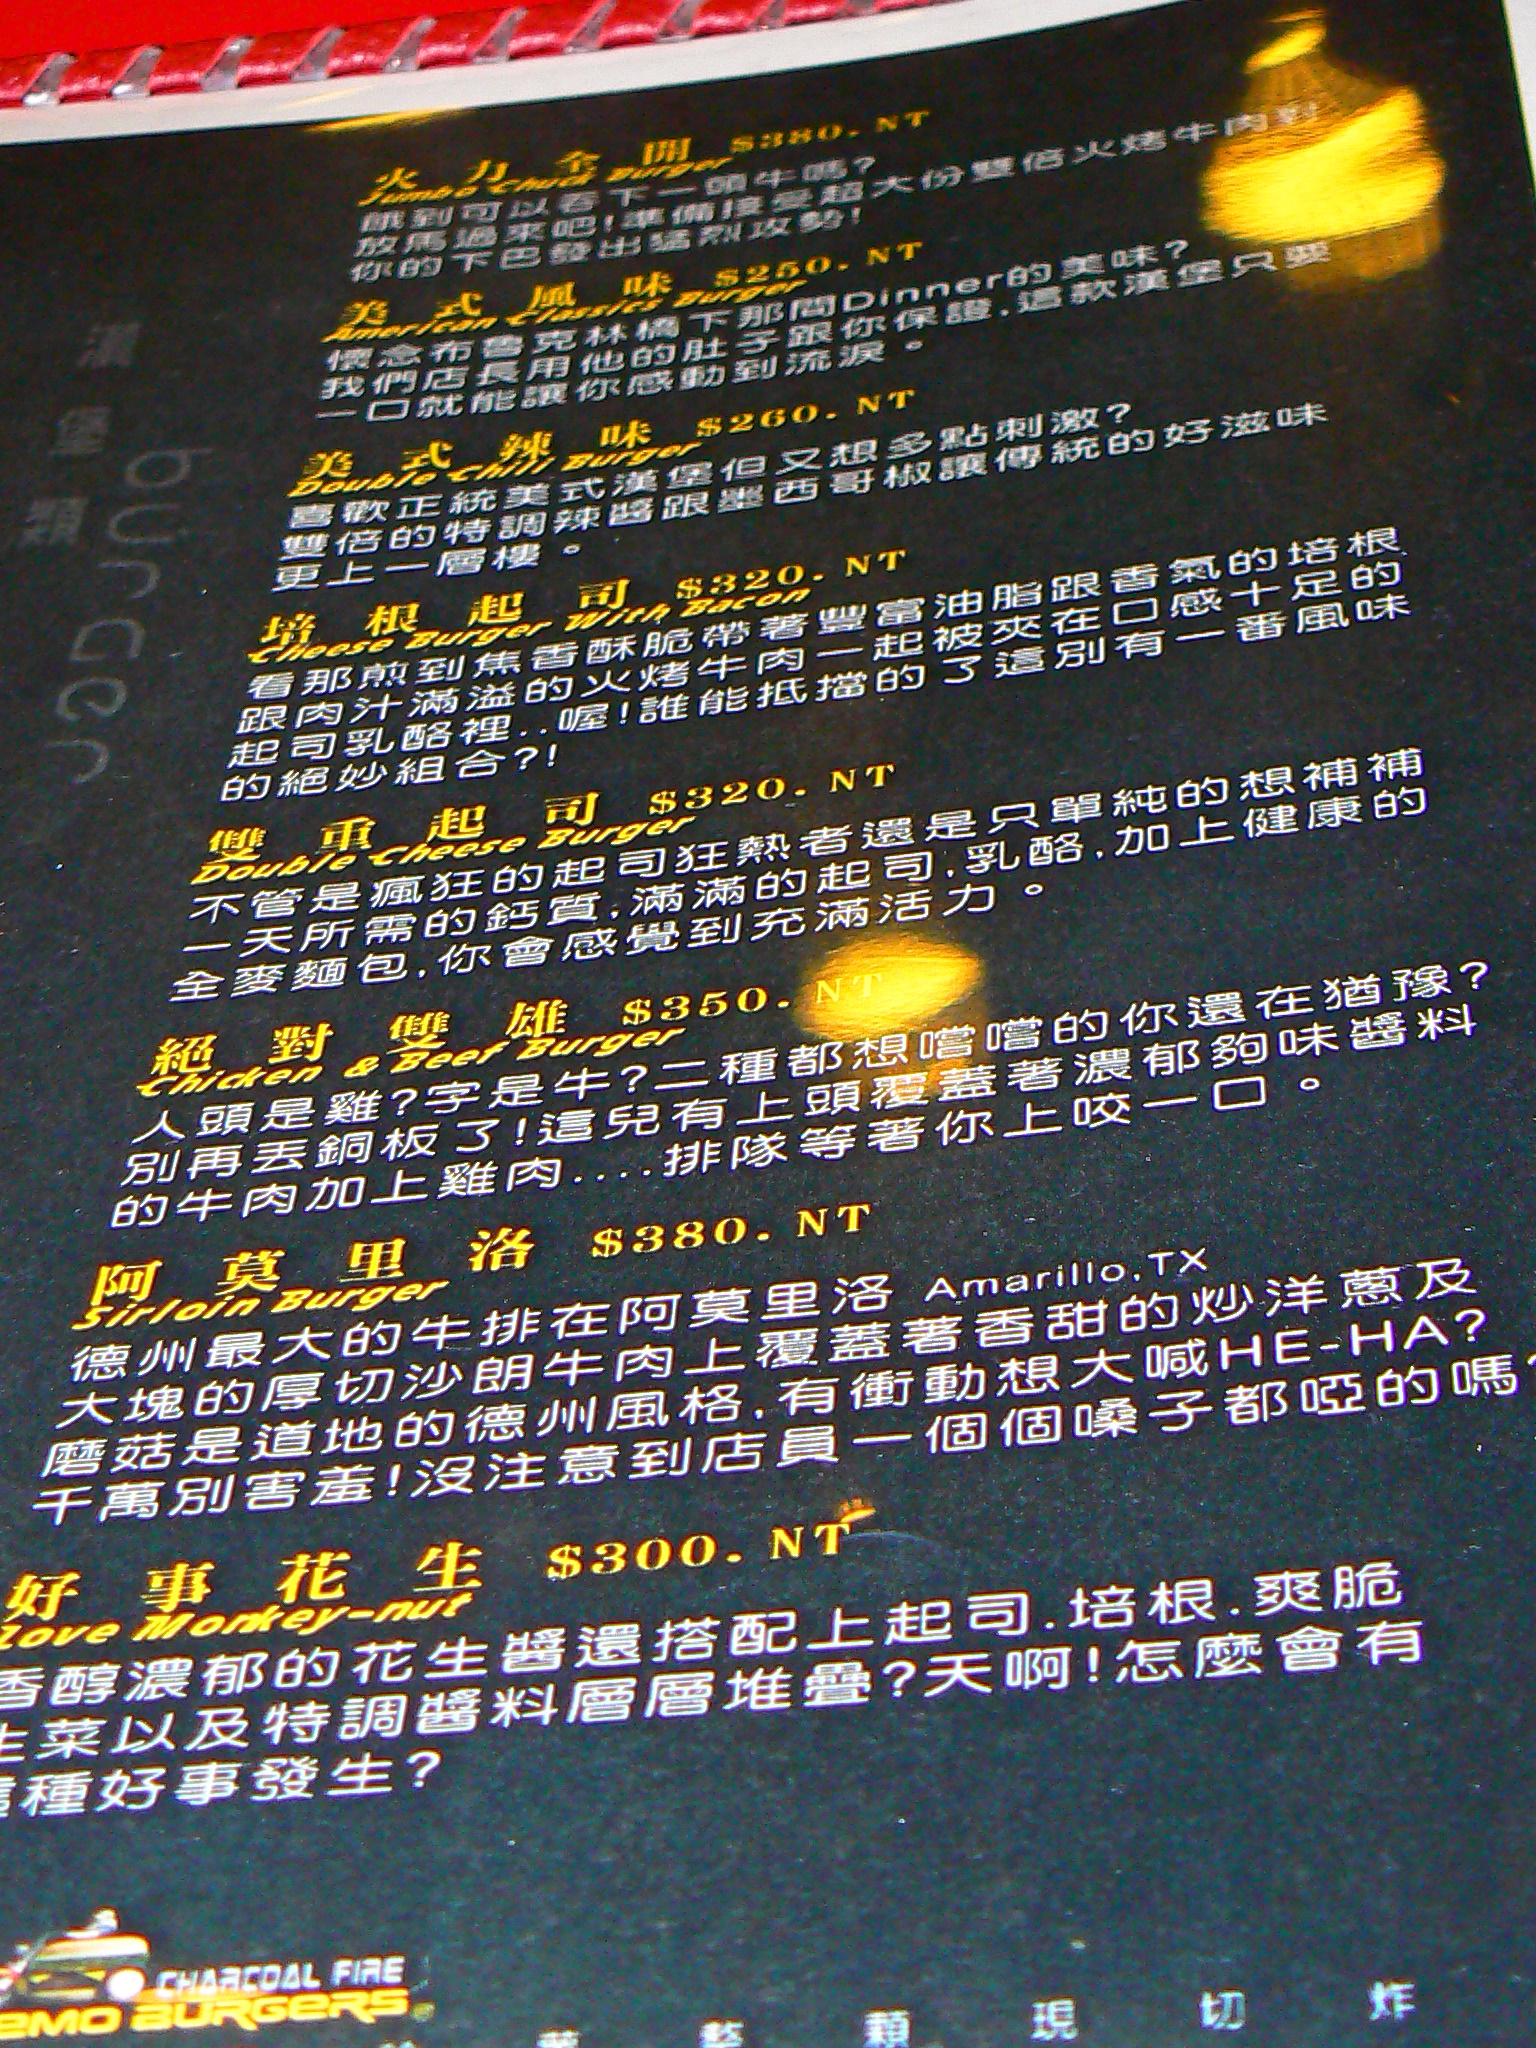 漢堡類
burger
火力全開 $380.NT
Jumbo Chuck Burger
餓到可以吞下一頭牛嗎?
放馬過來吧!準備接受超大份雙倍火烤牛肉對
你的下巴發出猛烈攻勢!
美式風味 $250.NT
American Classics Burger
懷念布魯克林橋下那間Dinner的美味?
我們店長用他的肚子跟你保證,這款漢堡只要
一口就能讓你感動到流淚。
美式辣味 $260.NT
Double Chili Burger
喜歡正統美式漢堡但又想多點刺激?
雙倍的特調辣醬跟墨西哥椒讓傳統的好滋味
更上一層樓。
培根起司 $320.NT
Cheese Burger With Bacon
看那煎到焦香酥脆帶著豐富油脂跟香氣的培根
跟肉汁滿溢的火烤牛肉一起被夾在口感十足的
起司乳酪裡..喔!誰能抵擋的了這別有一番風味
的絕妙組合?!
雙重起司 $320.NT
Double Cheese Burger
不管是瘋狂的起司狂熱者還是只單純的想補補
一天所需的鈣質,滿滿的起司,乳酪,加上健康的
全麥麵包,你會感覺到充滿活力。
絕對雙雄 $350.NT
Chicken & Beef Burger
人頭是雞?字是牛?二種都想嚐嚐的你還在猶豫?
別再丟銅板了!這兒有上頭覆蓋著濃郁夠味醬料
的牛肉加上雞肉....排隊等著你上咬一口。
阿莫里洛 $380.NT
Sirloin Burger
德州最大的牛排在阿莫里洛 Amarillo,TX
大塊的厚切沙朗牛肉上覆蓋著香甜的炒洋蔥及
磨菇是道地的德州風格,有衝動想大喊HE-HA?
千萬別害羞!沒注意到店員一個個嗓子都啞的嗎?
好事花生 $300.NT
Love Monkey-nut
香醇濃郁的花生醬還搭配上起司.培根.爽脆
生菜以及特調醬料層層堆疊?天啊!怎麼會有
這種好事發生?
CHARCOAL FIRE
EMO BURGERS
顆現切炸